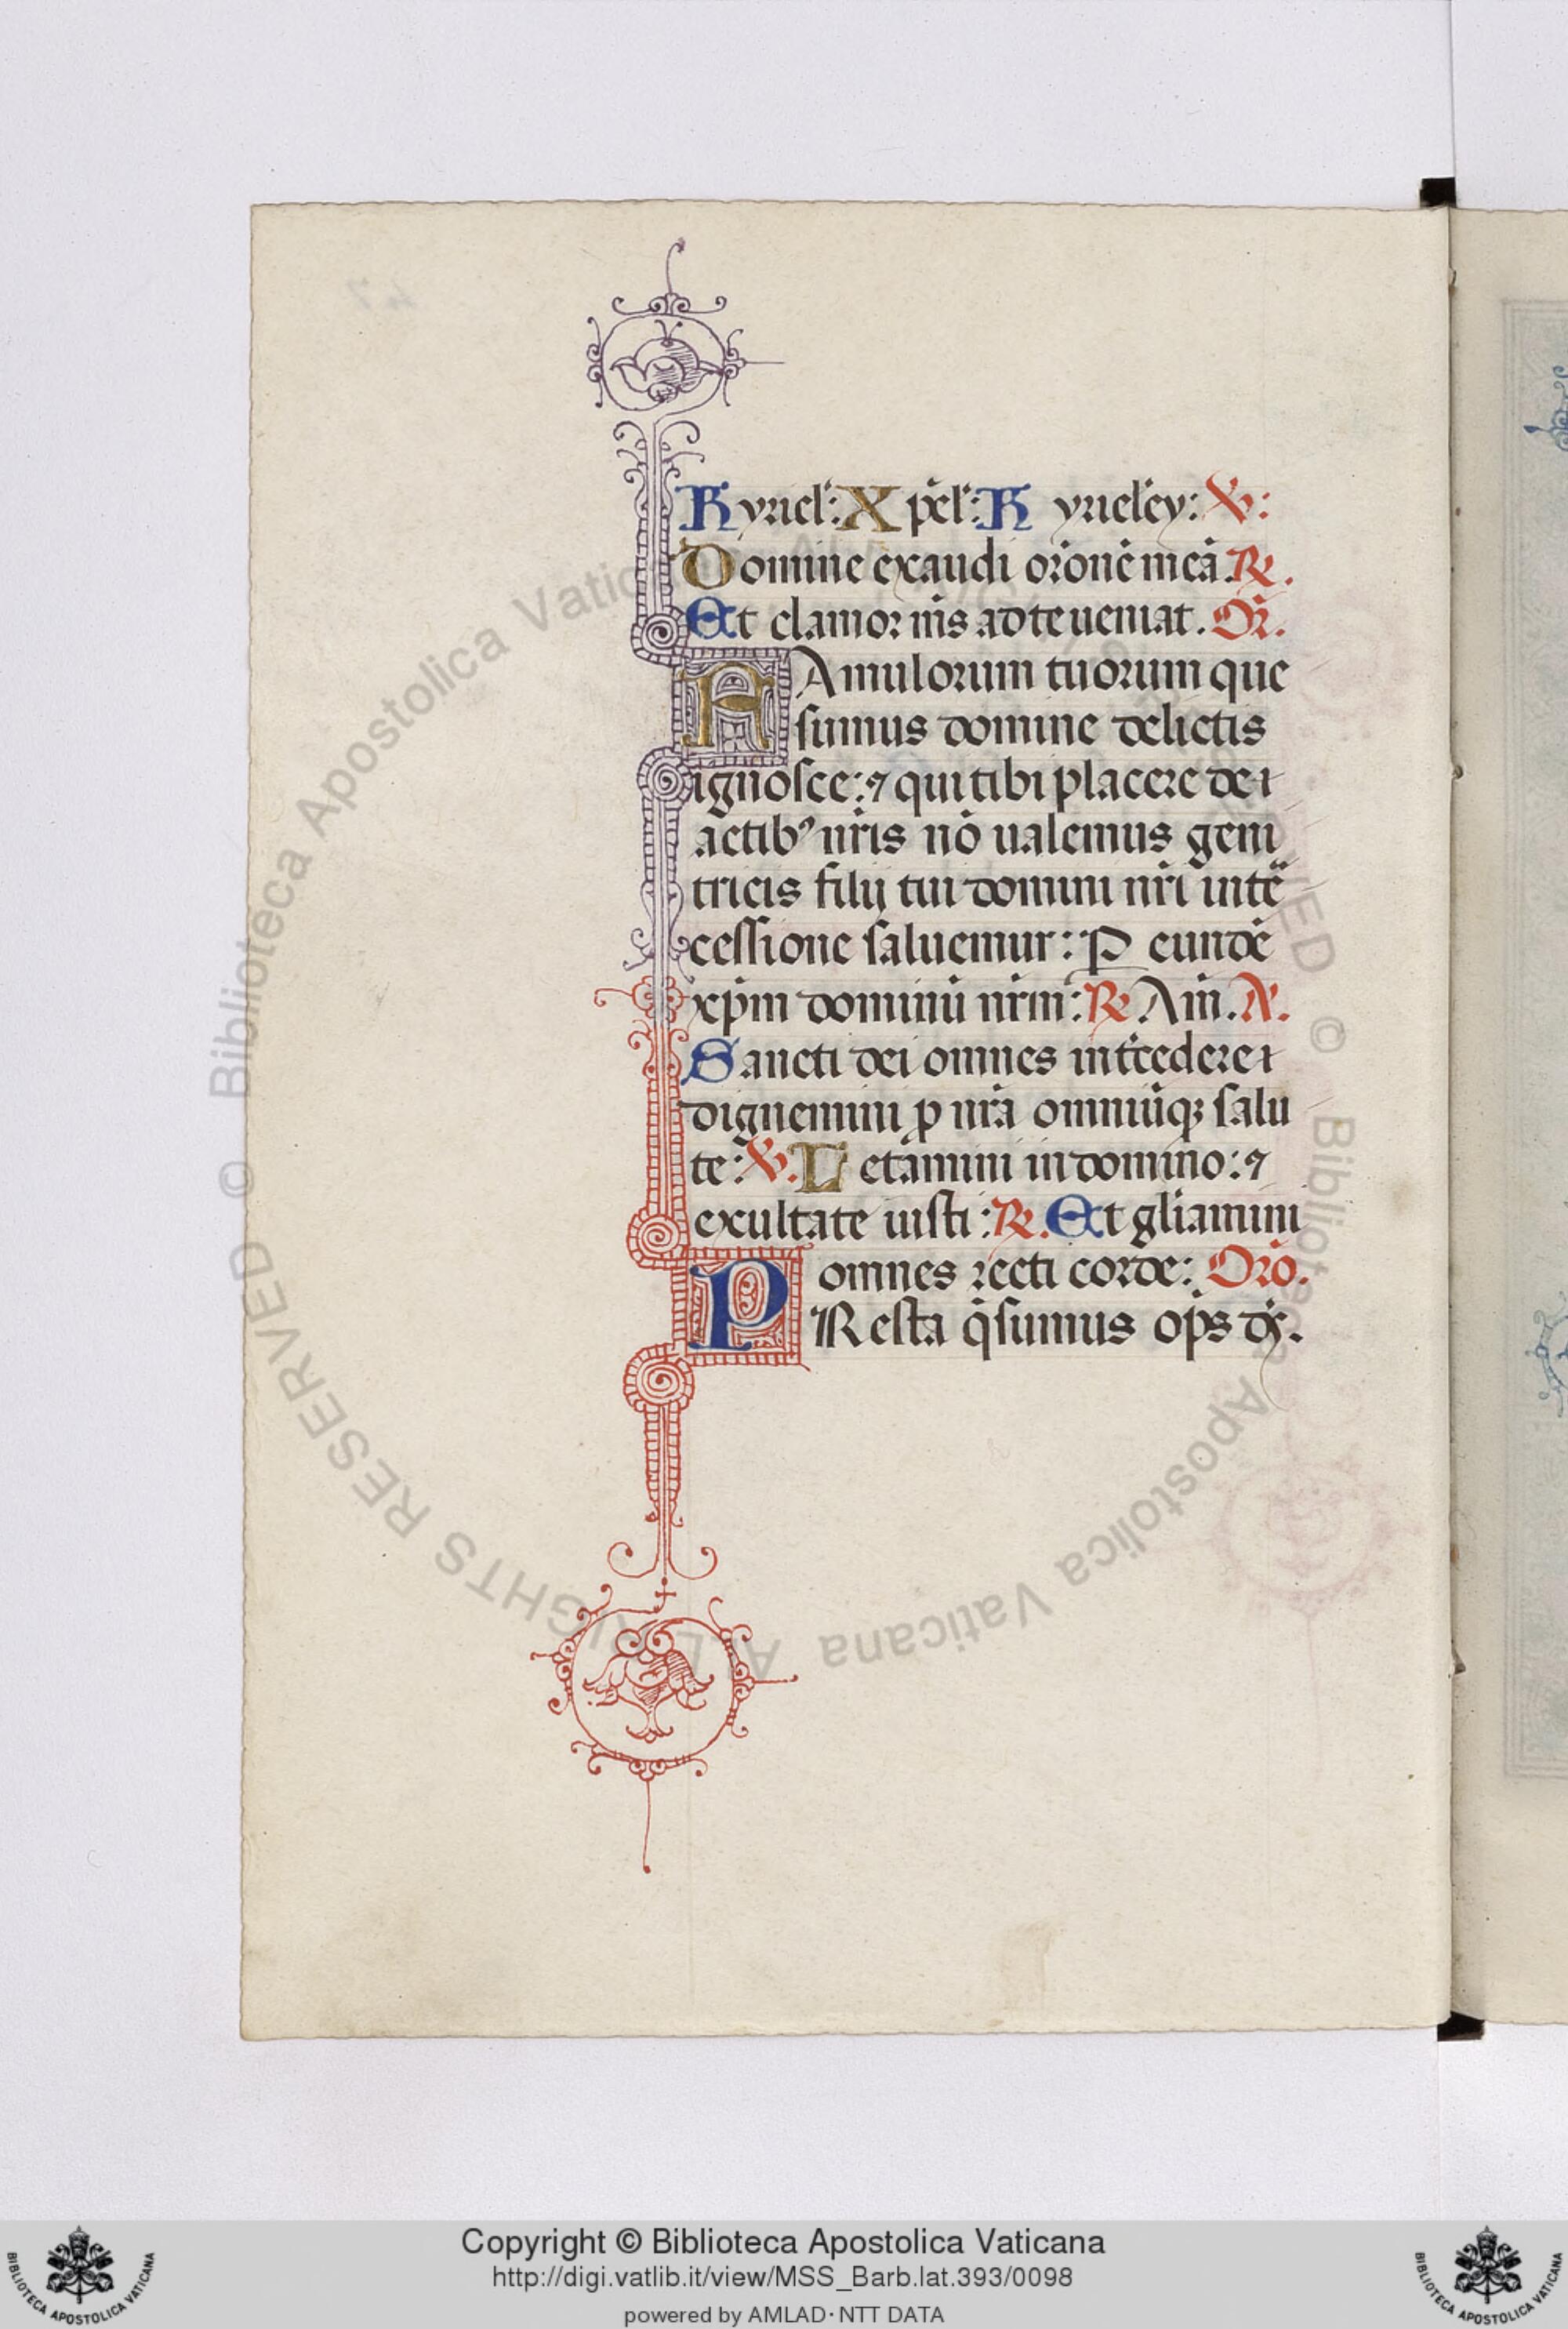 Kyriel̄: Xp̄el̄: Kyriel̄ey: ℣:
Domine exaudi or̄onē meā. ℟.
Et clamor m̄s ad te ueniat. Or̄.
FAmulorum tuorum que
sumus domine delictis
ignosce: ⁊ qui tibi placere de
actibꝰ nr̄is nō ualemus geni
tricis filij tui domini nr̄i intē
cessione saluemur: P eundē
xp̄m dominū nr̄m: ℟ Am̄. A.
Sancti dei omnes int̄cedere
dignemini ꝓ nr̄a omniūqꝫ salu
te: ℣. Letamini in domino: ⁊
exultate iusti: ℟. Et gl̄iamini
omnes recti corde: Or̄o.
PResta q̄sumus op̄s ds̄.
© Biblioteca Apostolica Vaticana ALL RIGHTS RESERVED
Copyright © Biblioteca Apostolica Vaticana
http://digi.vatlib.it/view/MSS_Barb.lat.393/0098
powered by AMLAD·NTT DATA
BIBLIOTECA APOSTOLICA VATICANA
BIBLIOTECA APOSTOLICA VATICANA